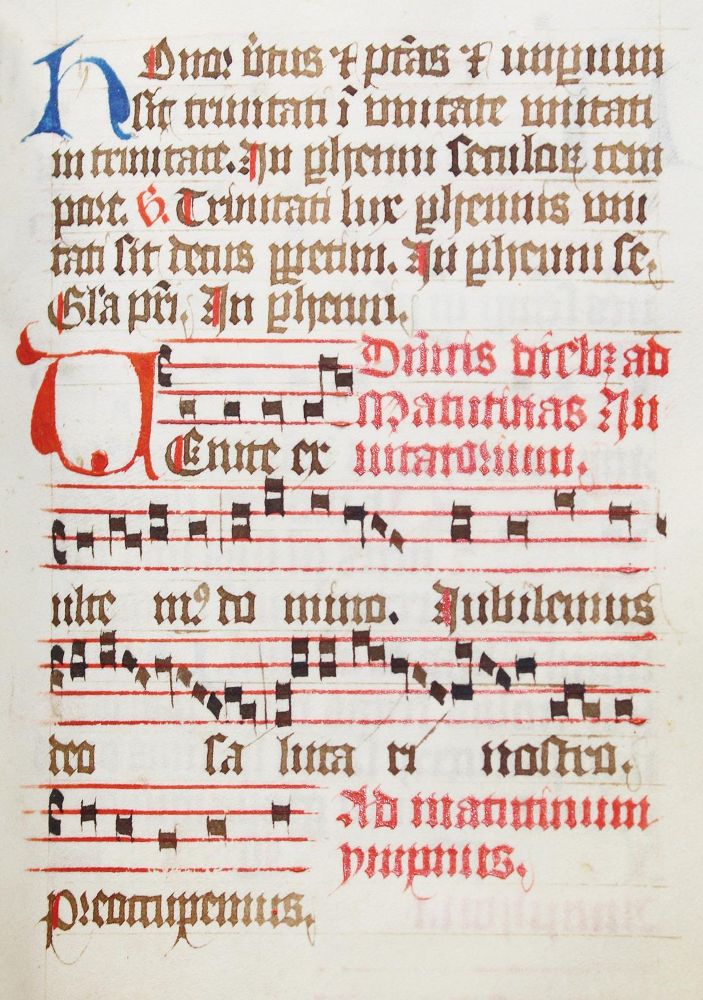 HOnor v̄tus ⁊ pt̄as ⁊ imꝑium
sit trinitati ī vnitate vnitati
in trinitate. In ꝑhenni seculoꝝ tem
pore. V̄. Trinitati lux ꝑhennis vni
tati sit decus ꝑpetim. In ꝑhenni se.
Gl'a pr̄i. In ꝑhenni.
Dn̄icis diebꝫ ad
Matutinas In
uitatorium.
VEnite ex
ulte mꝰ do mino. Iubilemus
deo sa luta ri nostro.
Ad matutinum
ympnus.
preoccupemus.